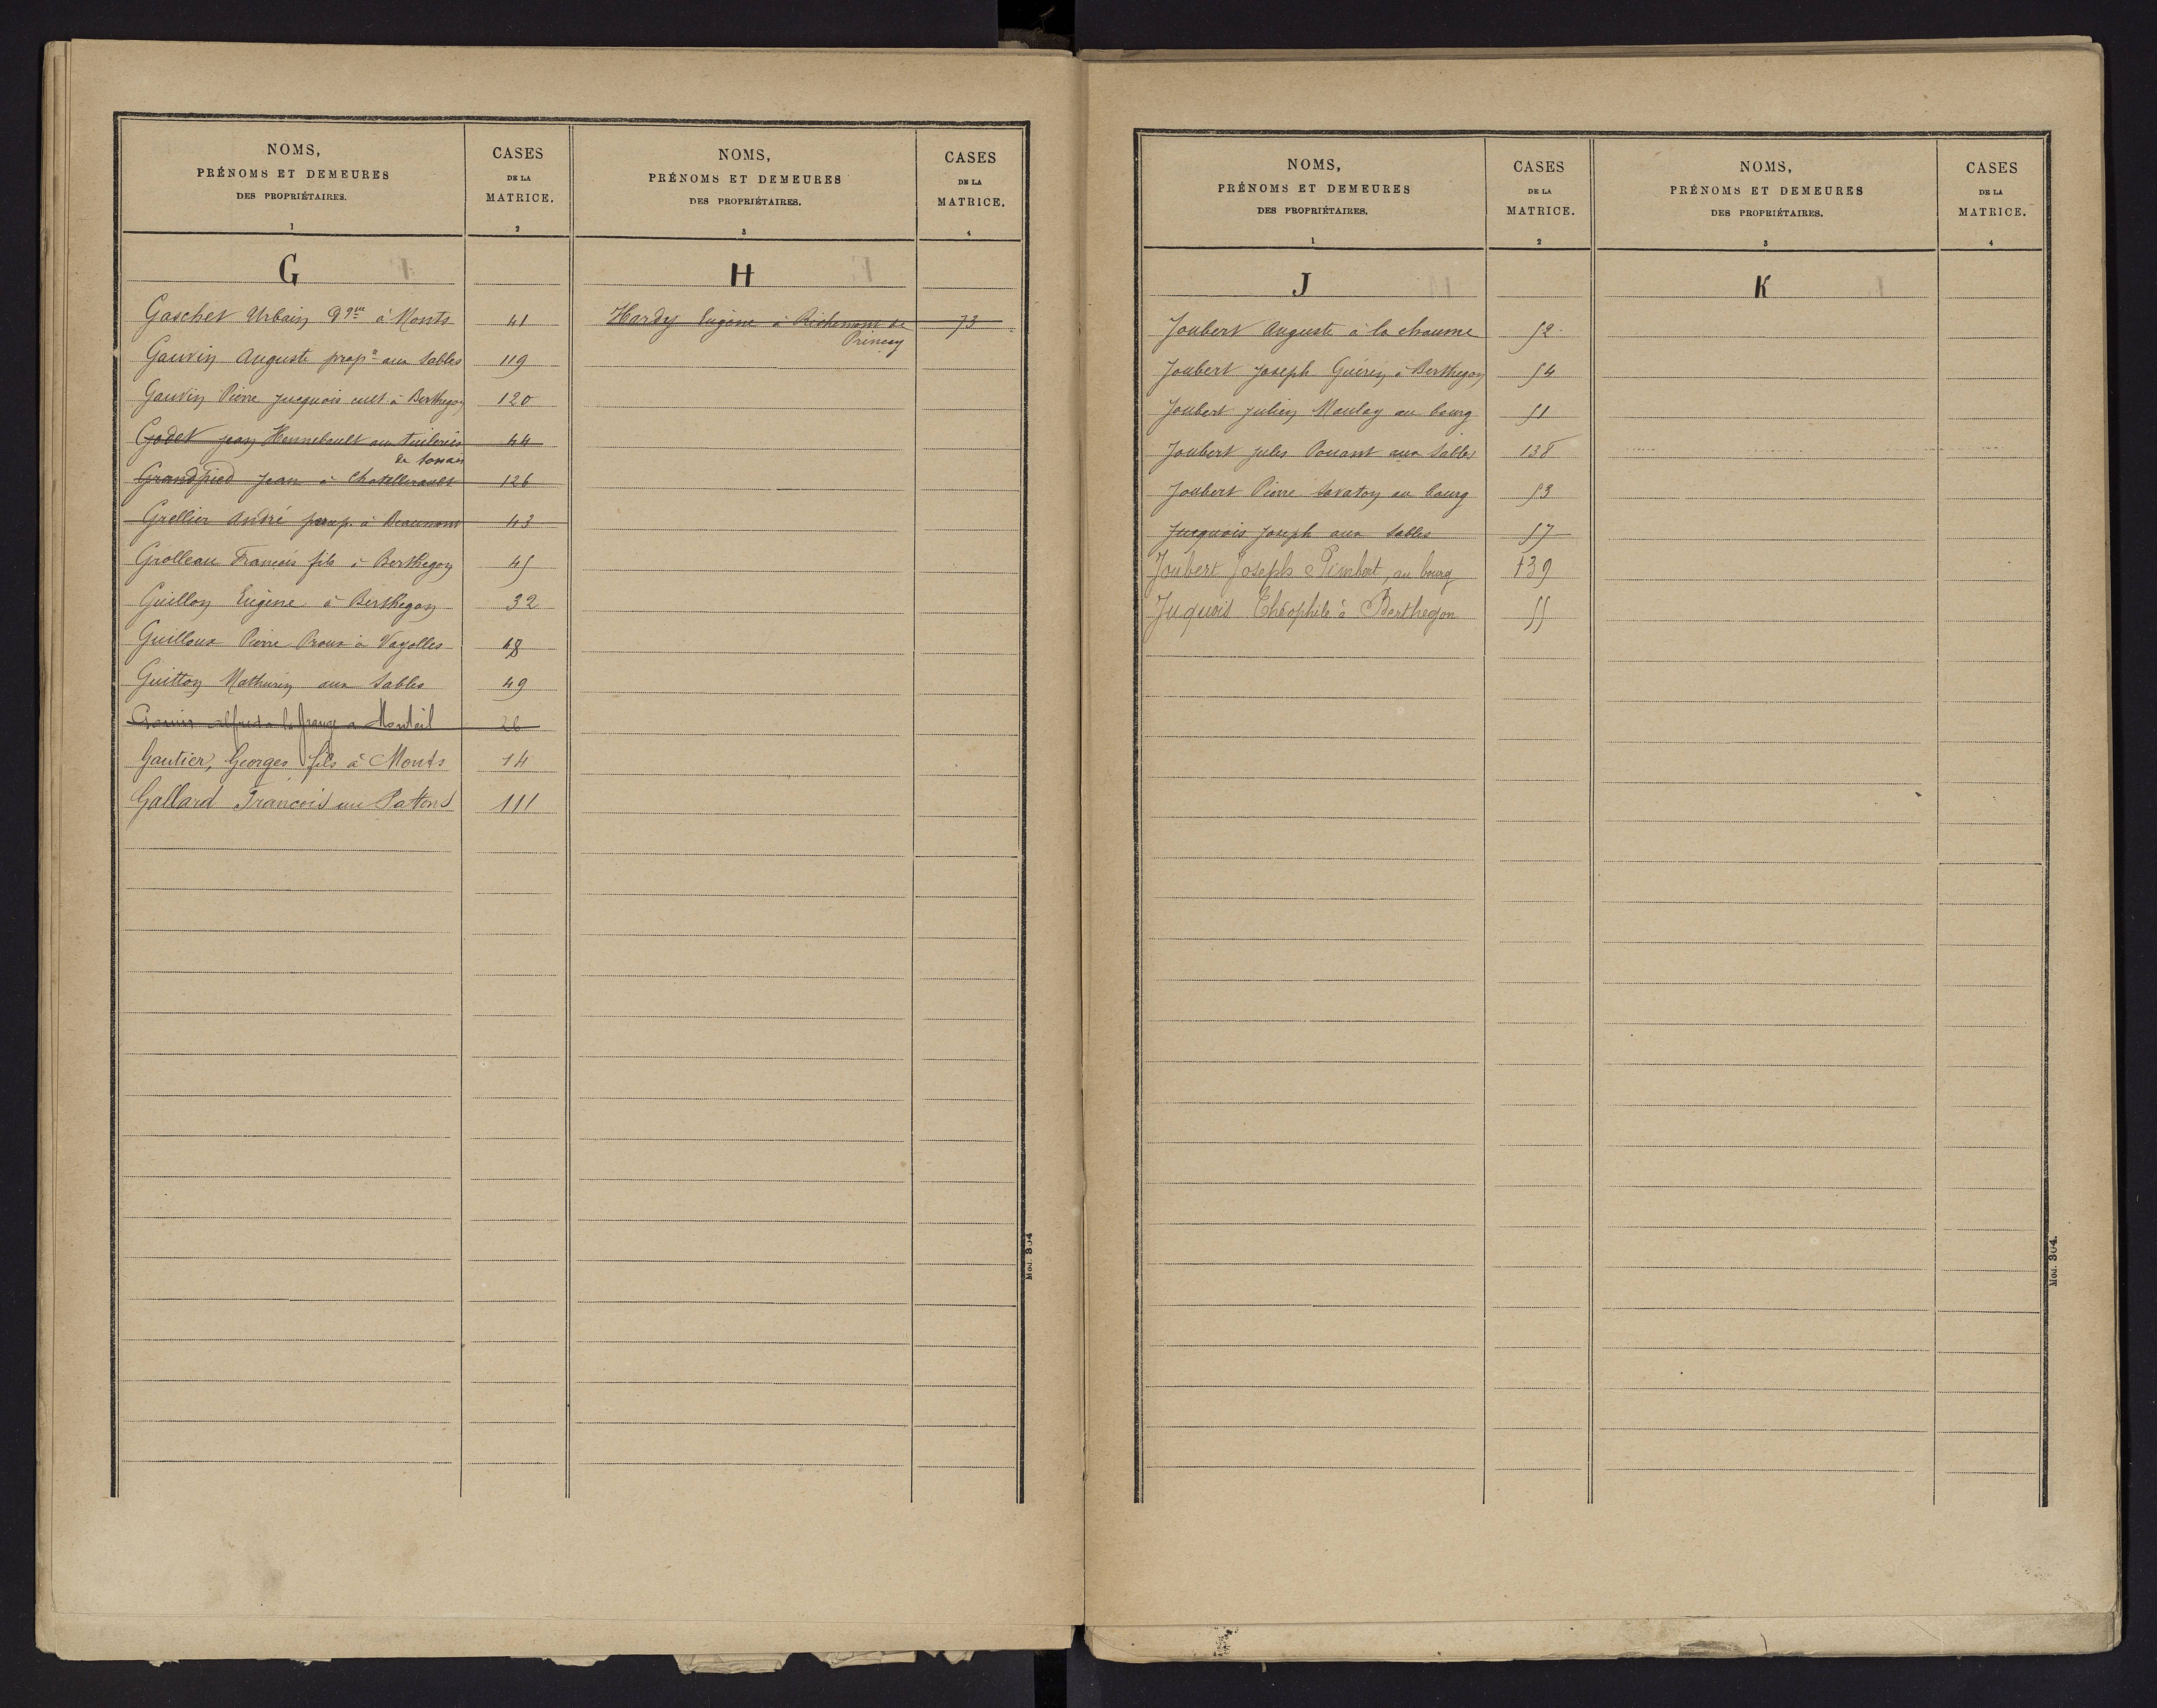 NOMS,
PRÉNOMS ET DEMEURES
DES PROPRIÉTAIRES.
1
CASES
DE LA
MATRICE.
2
G
Gaschet Urbain à Monts 41
Gauvin Auguste prop.re aux Sables 119
Gauvin Pierre Jucquois cult à Berthegon 120
Godet Jean Hennebault aux tuileries 44
de
Grandpied Jean à Chatellerault 126
Grellier André prop. à Beaumont 43
Grolleau Francois fils à Berthegon 45
Guillon Eugène à Berthegon 32
Guilloux Pierre Proux à Vayolles 48
Guitton Mathurin aux Sables 49
la grange a Monteil 26
Gautier, Georges fils à Monts 14
Gallard Francois aux Pattons 111
NOMS,
PRÉNOMS ET DEMEURES
DES PROPRIÉTAIRES.
3
CASES
DE LA
MATRICE.
4
H
Hardy Eugène à Richemont de 73
Princay
Mod. 304
NOMS,
PRÉNOMS ET DEMEURES
DES PROPRIÉTAIRES.
1
CASES
DE LA
MATRICE.
2
J
Joubert Auguste à la chaume 52
Joubert Joseph Guérin à Berthegon 54
Joubert Julien Maulay au bourg 51
Joubert Jules Pouant aux Sables 138
Joubert Pierre Savaton au bourg 53
Jucquois Joseph aux Sables 57
Joubert Joseph Pimbert, au bourg 139
Juquois Théophile à Berthegon 55
NOMS,
PRÉNOMS ET DEMEURES
DES PROPRIÉTAIRES.
3
CASES
DE LA
MATRICE.
4
K
Mod. 304.